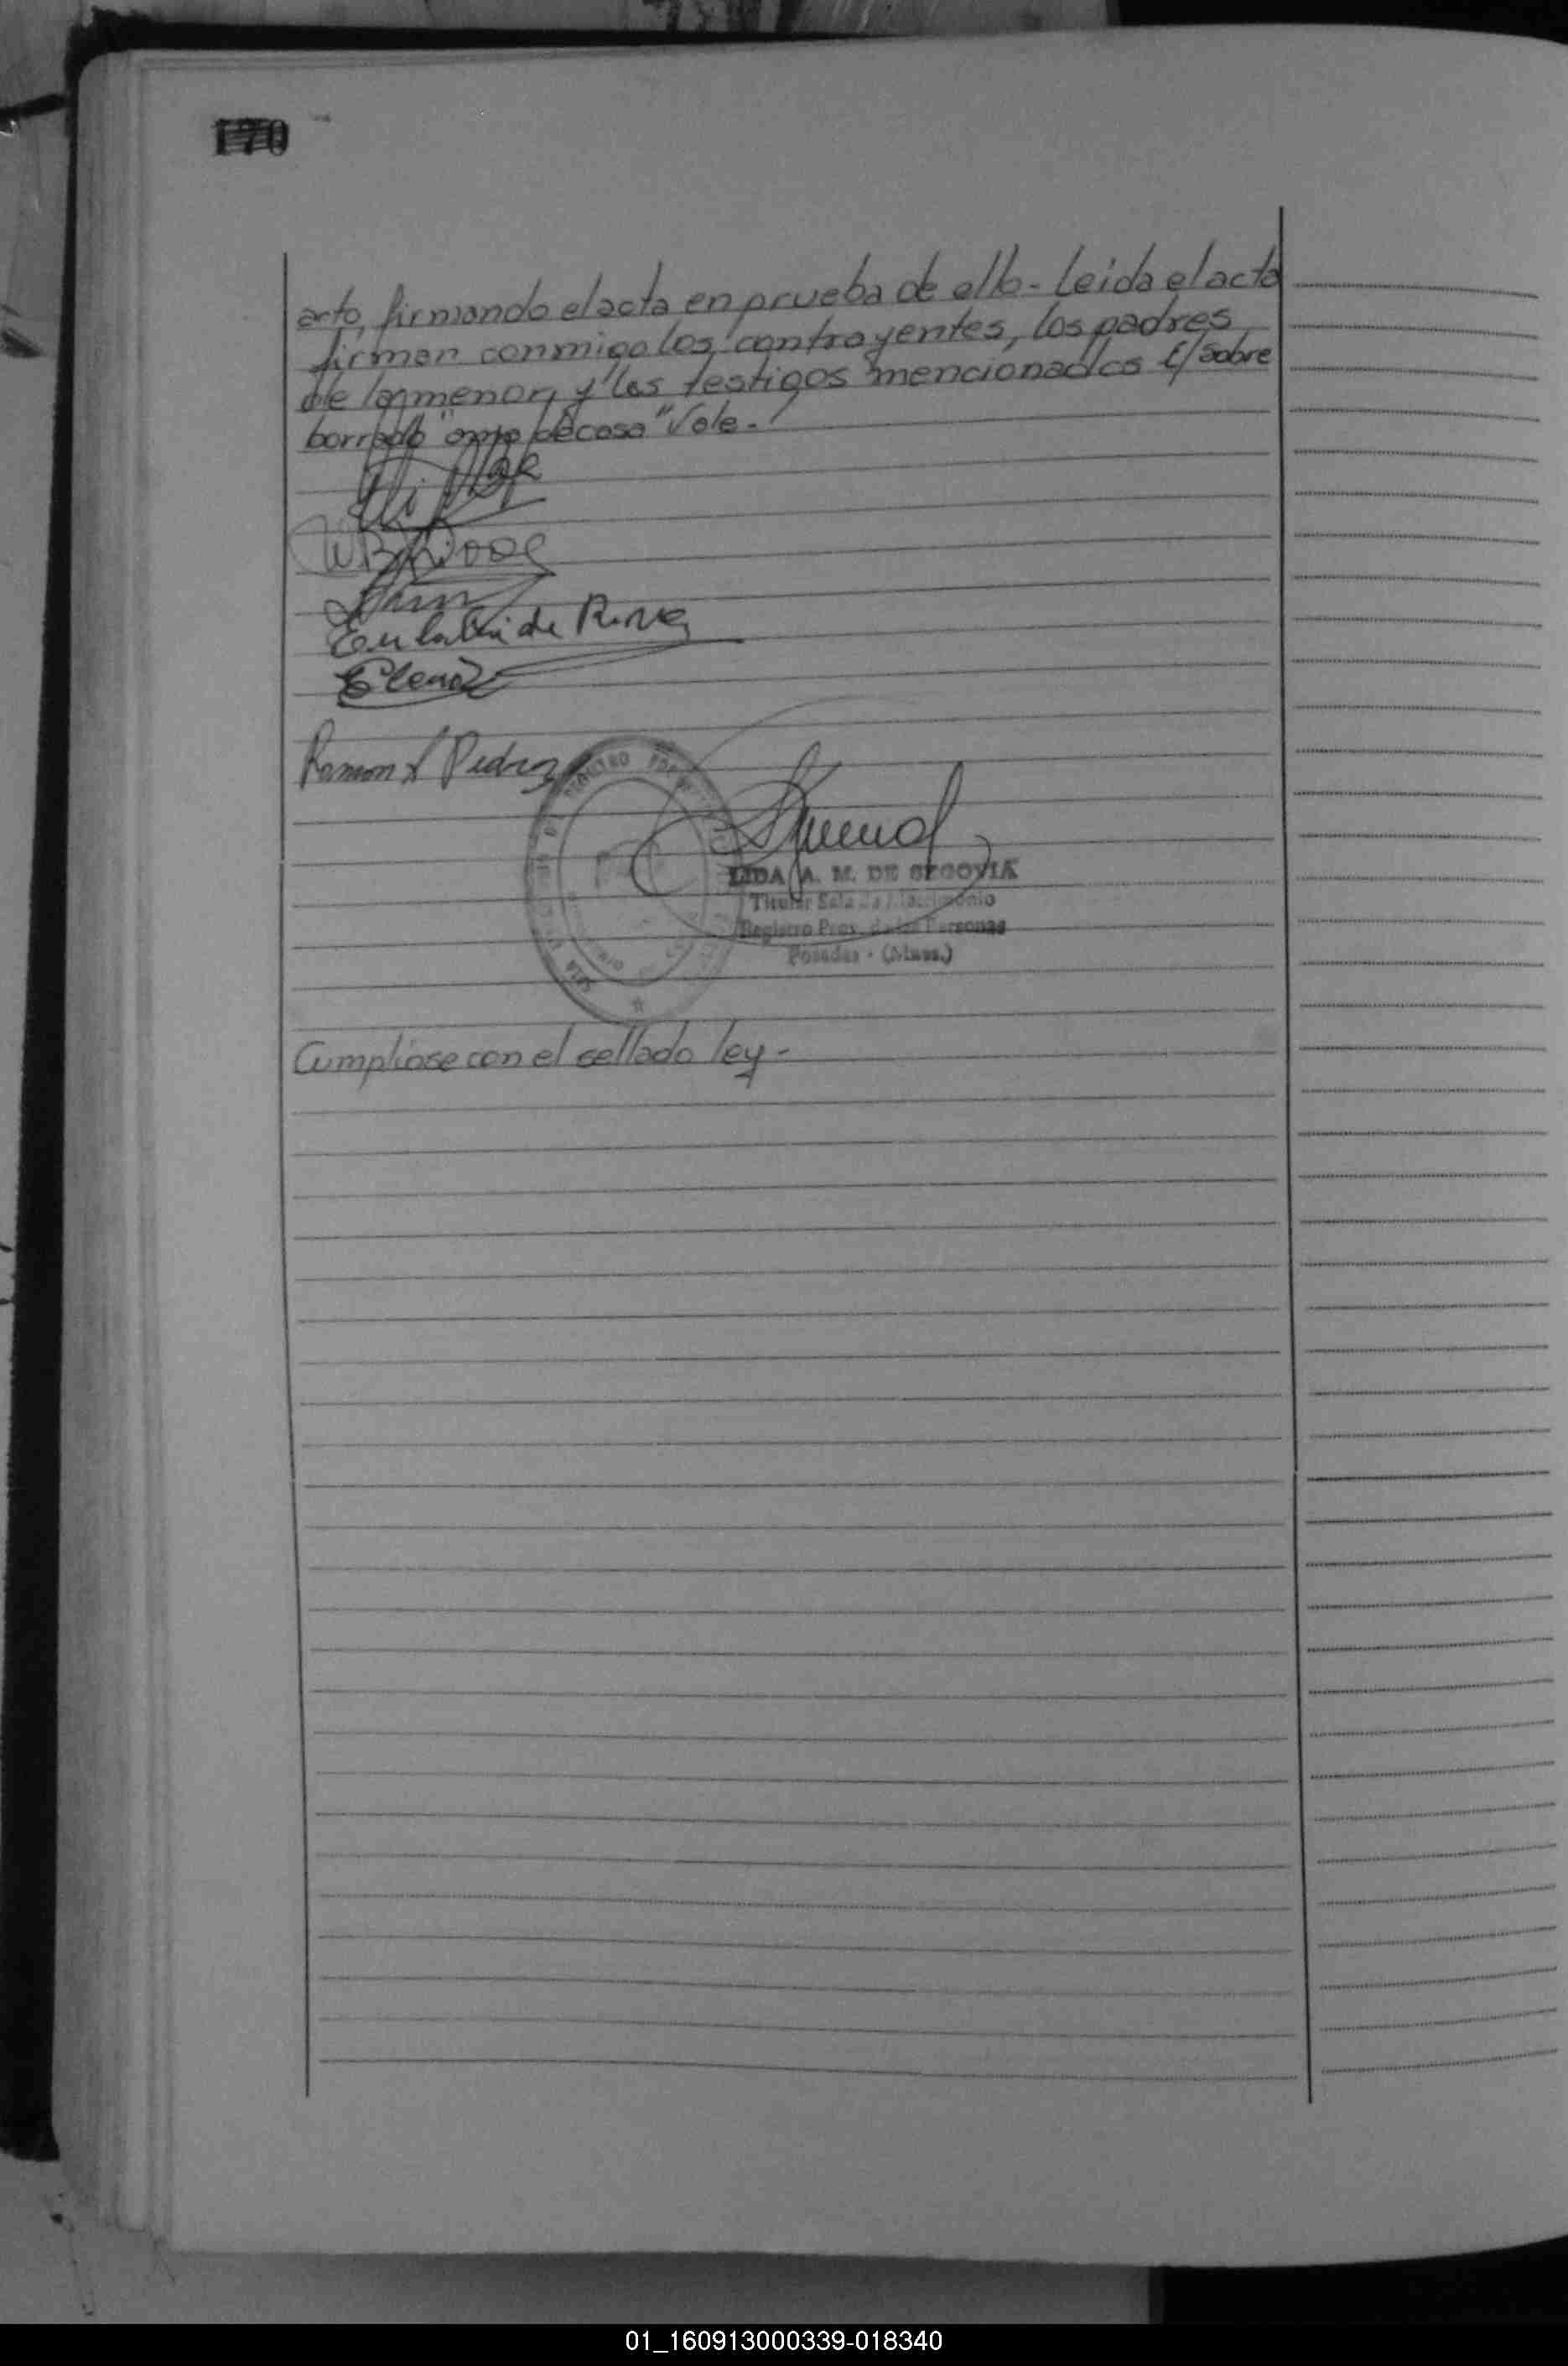 170
acto, firmando el acta en prueba de ello - Leida el acta
firman conmigo los contrayentes, los padres
de la menor, y los testigos mencionados E/ sobre
borrado " ama de casa " Vale.-
Eulalia de
Elena
Ramon Pedro
REGISTRO
LIDA A. M. DE SEGOVIA
Titular Sala de Matrimonio
Registro Prov. de las Personas
Posadas - (Mnes.)
Cumpliose con el sellado ley -
01_160913000339-018340